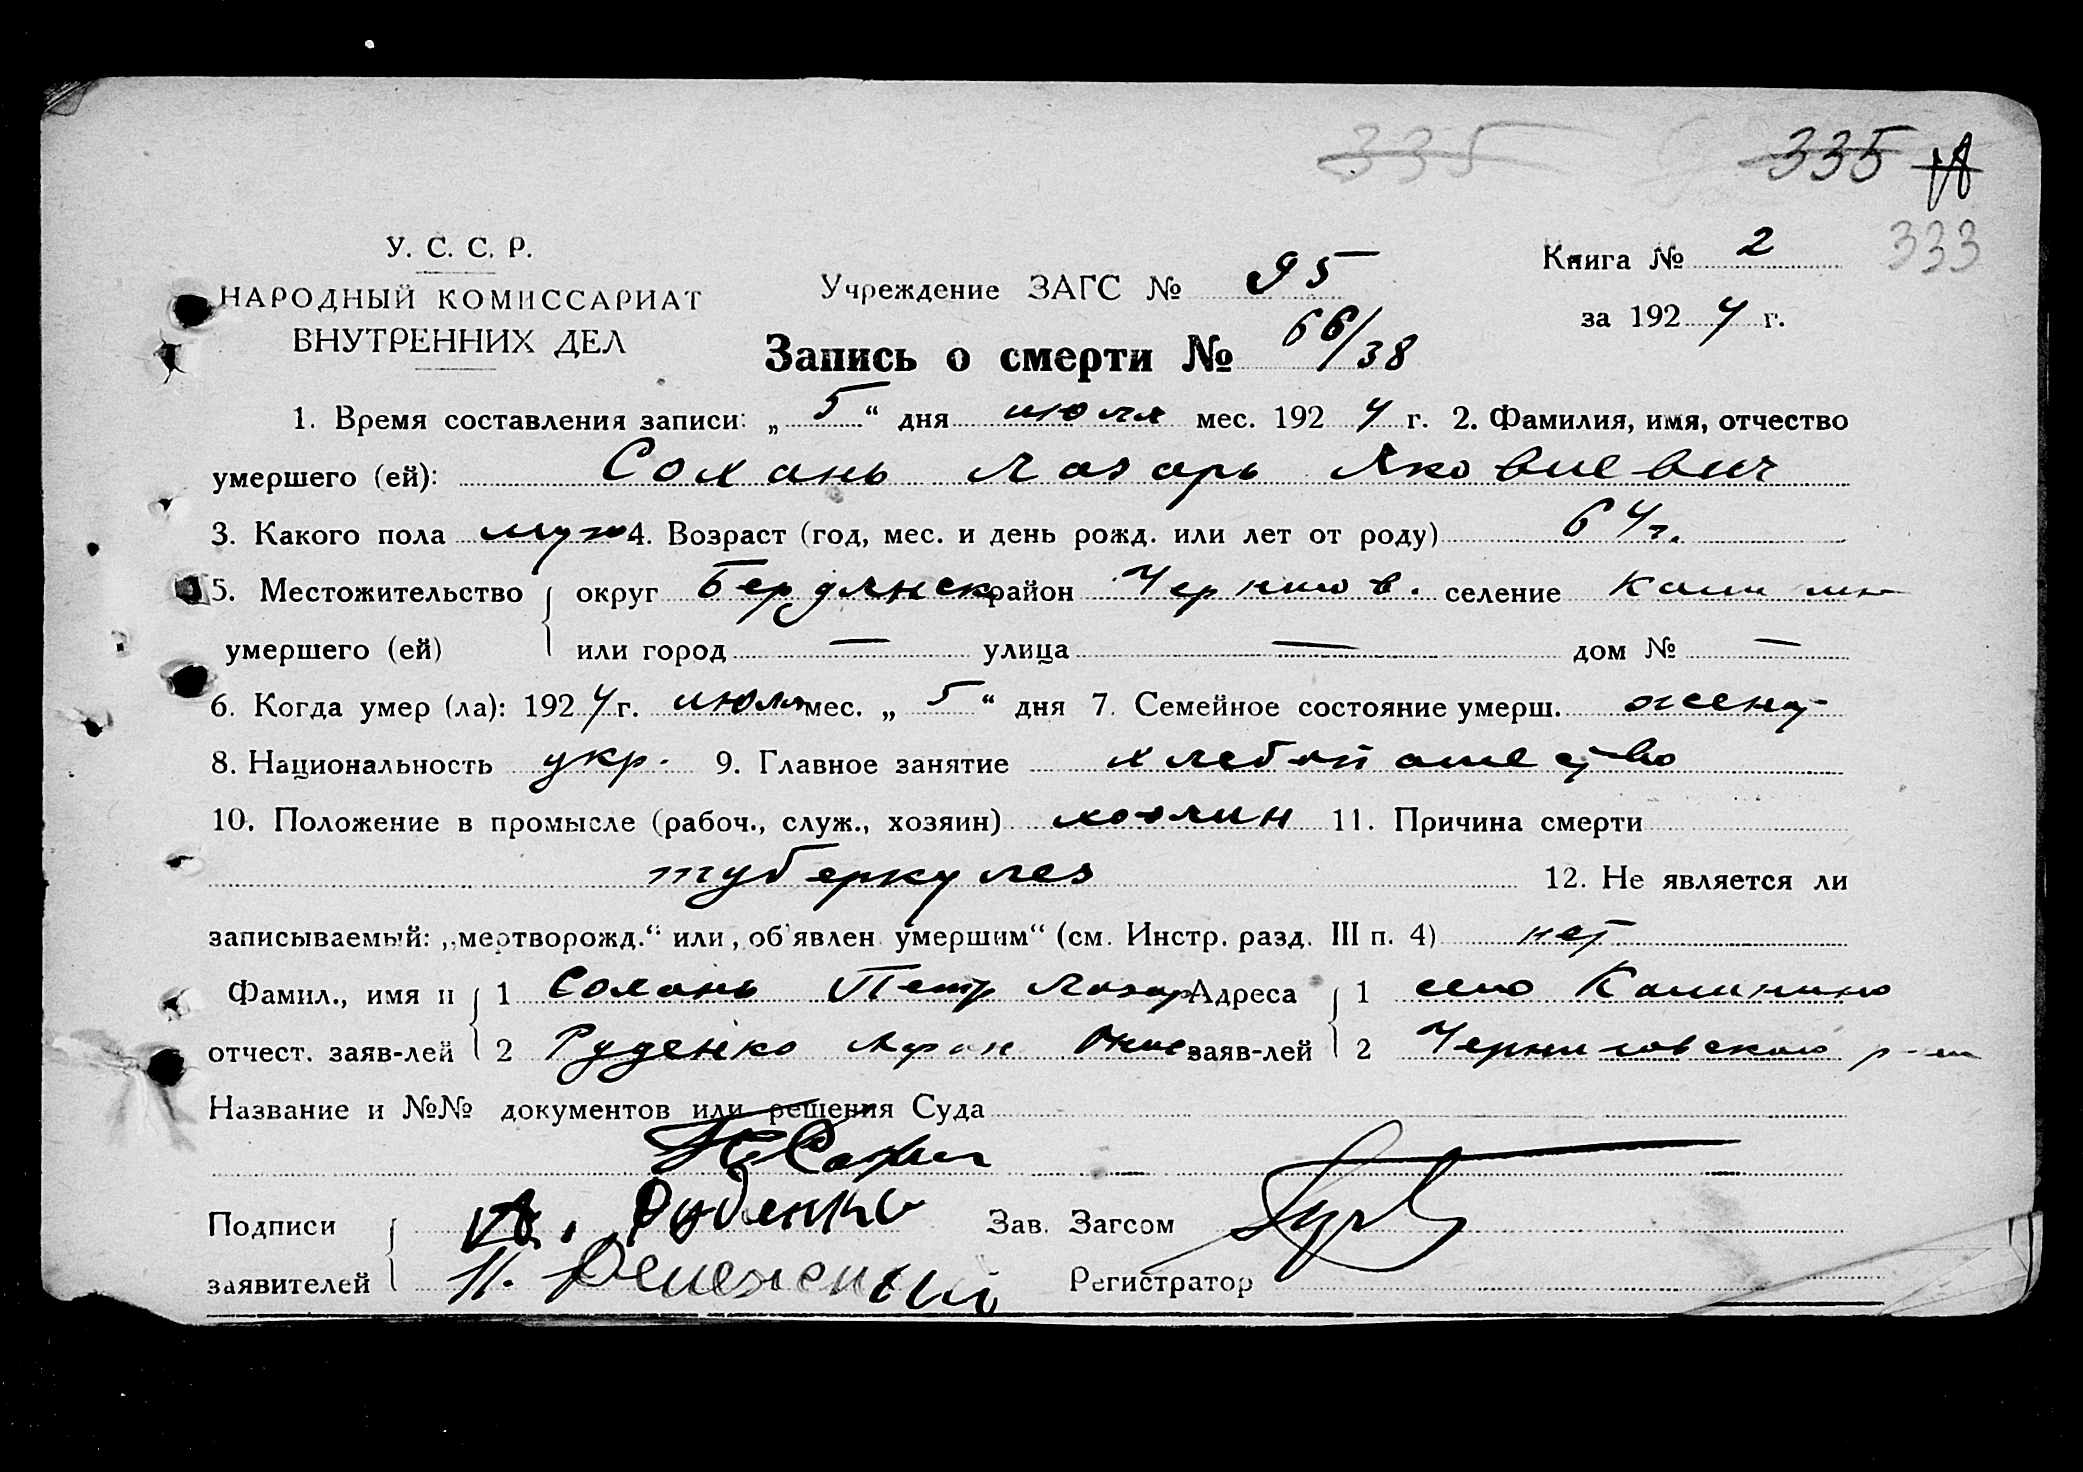 335 335
333
У. С. С. Р.
НАРОДНЫЙ КОМИССАРИАТ
ВНУТРЕННИХ ДЕЛ
Учреждение ЗАГС № 95
Книга № 2
за 1924 г.
Запись о смерти № 66/38
1. Время составления записи: „5“ дня июля мес. 1924 г. 2. Фамилия, имя, отчество
умершего (ей): Солань Лазарь Яковлевич
3. Какого пола муж 4. Возраст (год, мес. и день рожд. или лет от роду) 64 г.
5. Местожительство округ Бердянск район Чернигов. селение Калинин
умершего (ей) или город — улица — дом № —
6. Когда умер (ла): 1924 г. июля мес. „5“ дня 7. Семейное состояние умерш. женат
8. Национальность укр. 9. Главное занятие хлебопашество
10. Положение в промысле (рабоч., служ., хозяин) хозяин 11. Причина смерти
туберкулез 12. Не является ли
записываемый: „мертворожд.“ или „об'явлен умершим“ (см. Инстр. разд. III п. 4) нет
Фамил., имя и 1 Солань Петр Лазар Адреса 1 село Калинино
отчест. заяв-лей 2 Руденко заяв-лей 2 Черниговского р-на
Название и №№ документов или решения Суда
Подписи А. Руденко Зав. Загсом
заявителей Регистратор